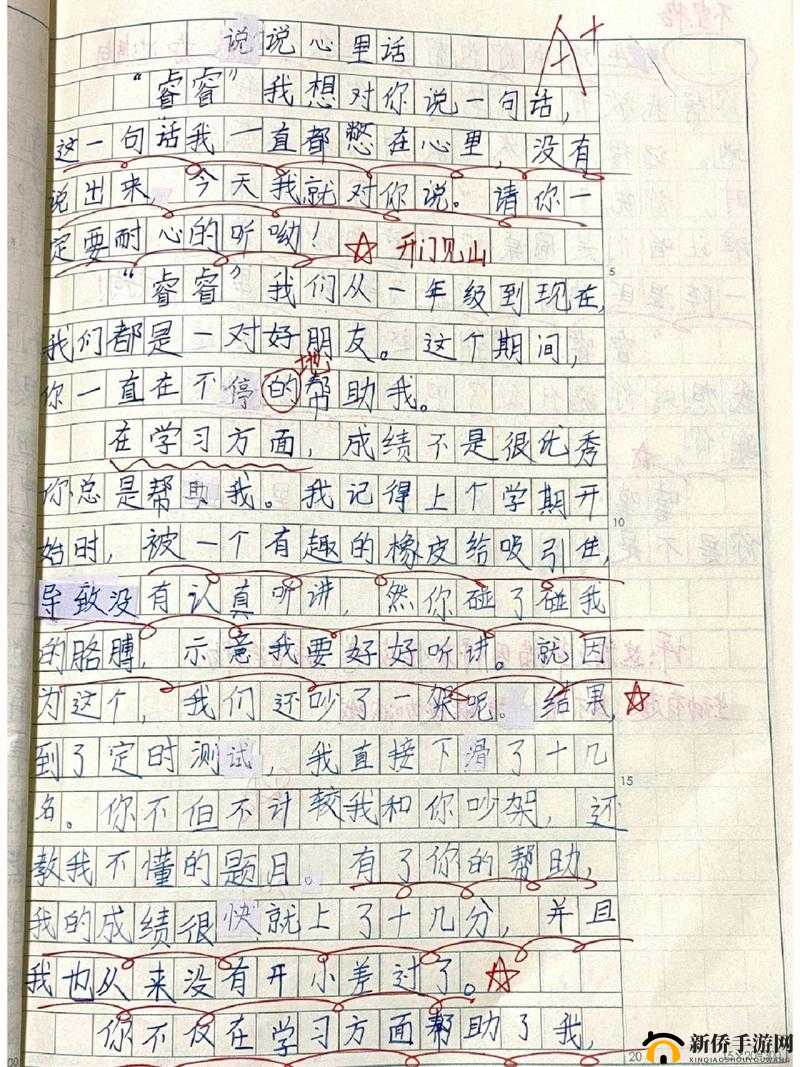 说说心里话
A+
“睿睿”我想对你说一句话,
这一句话我一直都憋在心里,没有
说出来,今天我就对你说。请你一
定要耐心的听呦!
开门见山
“睿睿”我们从一年级到现在,
5
我们都是一对好朋友。这个期间,
地
你一直在不停的帮助我。
在学习方面,成绩不是很优秀
你总是帮助我。我记得上个学期开
10
始时,被一个有趣的橡皮给吸引住,
导致没有认真听讲,然你碰了碰我
的胳膊,示意我要好好听讲。就因
为这个,我们还吵了一架呢。结果,
到了定时测试,我直接下滑了十几
15
名。你不但不计较我和你吵架,还
教我不懂的题目。有了你的帮助,
我的成绩很快就上了十几分,并且
我也从来没有开小差过了。
你不仅在学习方面帮助了我,
20
新侨手游网
XINQIAOSHOUYOUWANG